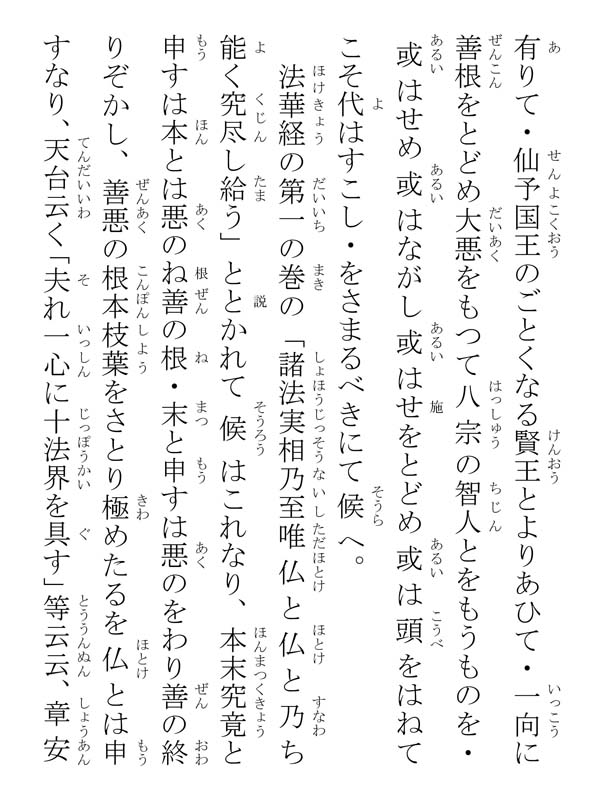 有りて・仙予国王のごとくなる賢王とよりあひて・一向に
善根をとどめ大悪をもつて八宗の智人とをもうものを・
或はせめ或はながし或はせをとどめ或は頭をはねて
こそ代はすこし・をさまるべきにて候へ。
法華経の第一の巻の「諸法実相乃至唯仏と仏と乃ち
能く究尽し給う」ととかれて候はこれなり、本末究竟と
申すは本とは悪のね善の根・末と申すは悪のをわり善の終
りぞかし、善悪の根本枝葉をさとり極めたるを仏とは申
すなり、天台云く「夫れ一心に十法界を具す」等云云、章安